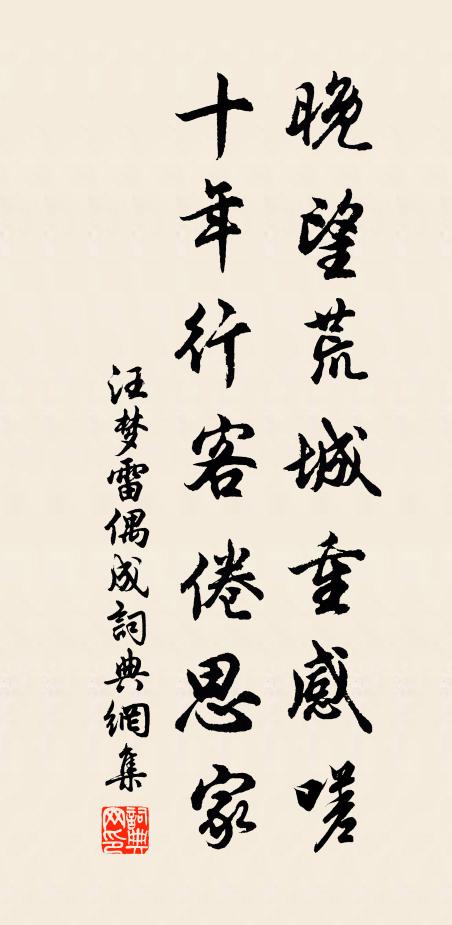 晚望荒城重感嗟
十年行客倦思家
汪梦雷偶成詞典網集
詞典网印